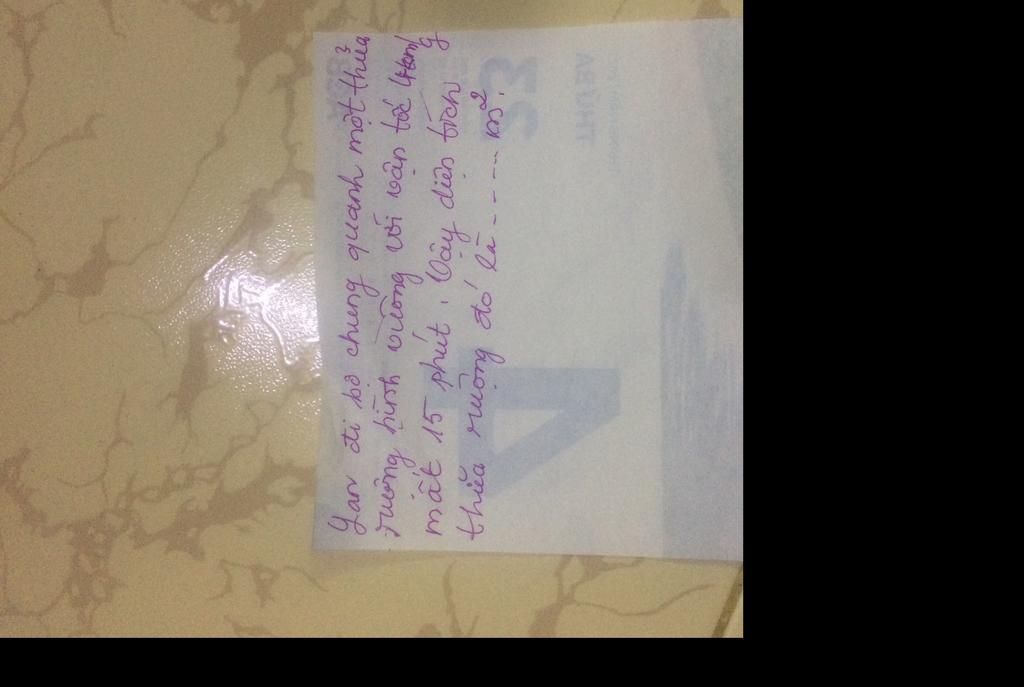 Yan đi bộ chung quanh một thửa
ruộng hình vuông với vận tốc
mất 15 phút. Vậy diện tích
thửa ruộng đó là - - - - - m².
4
23
THỨ BA